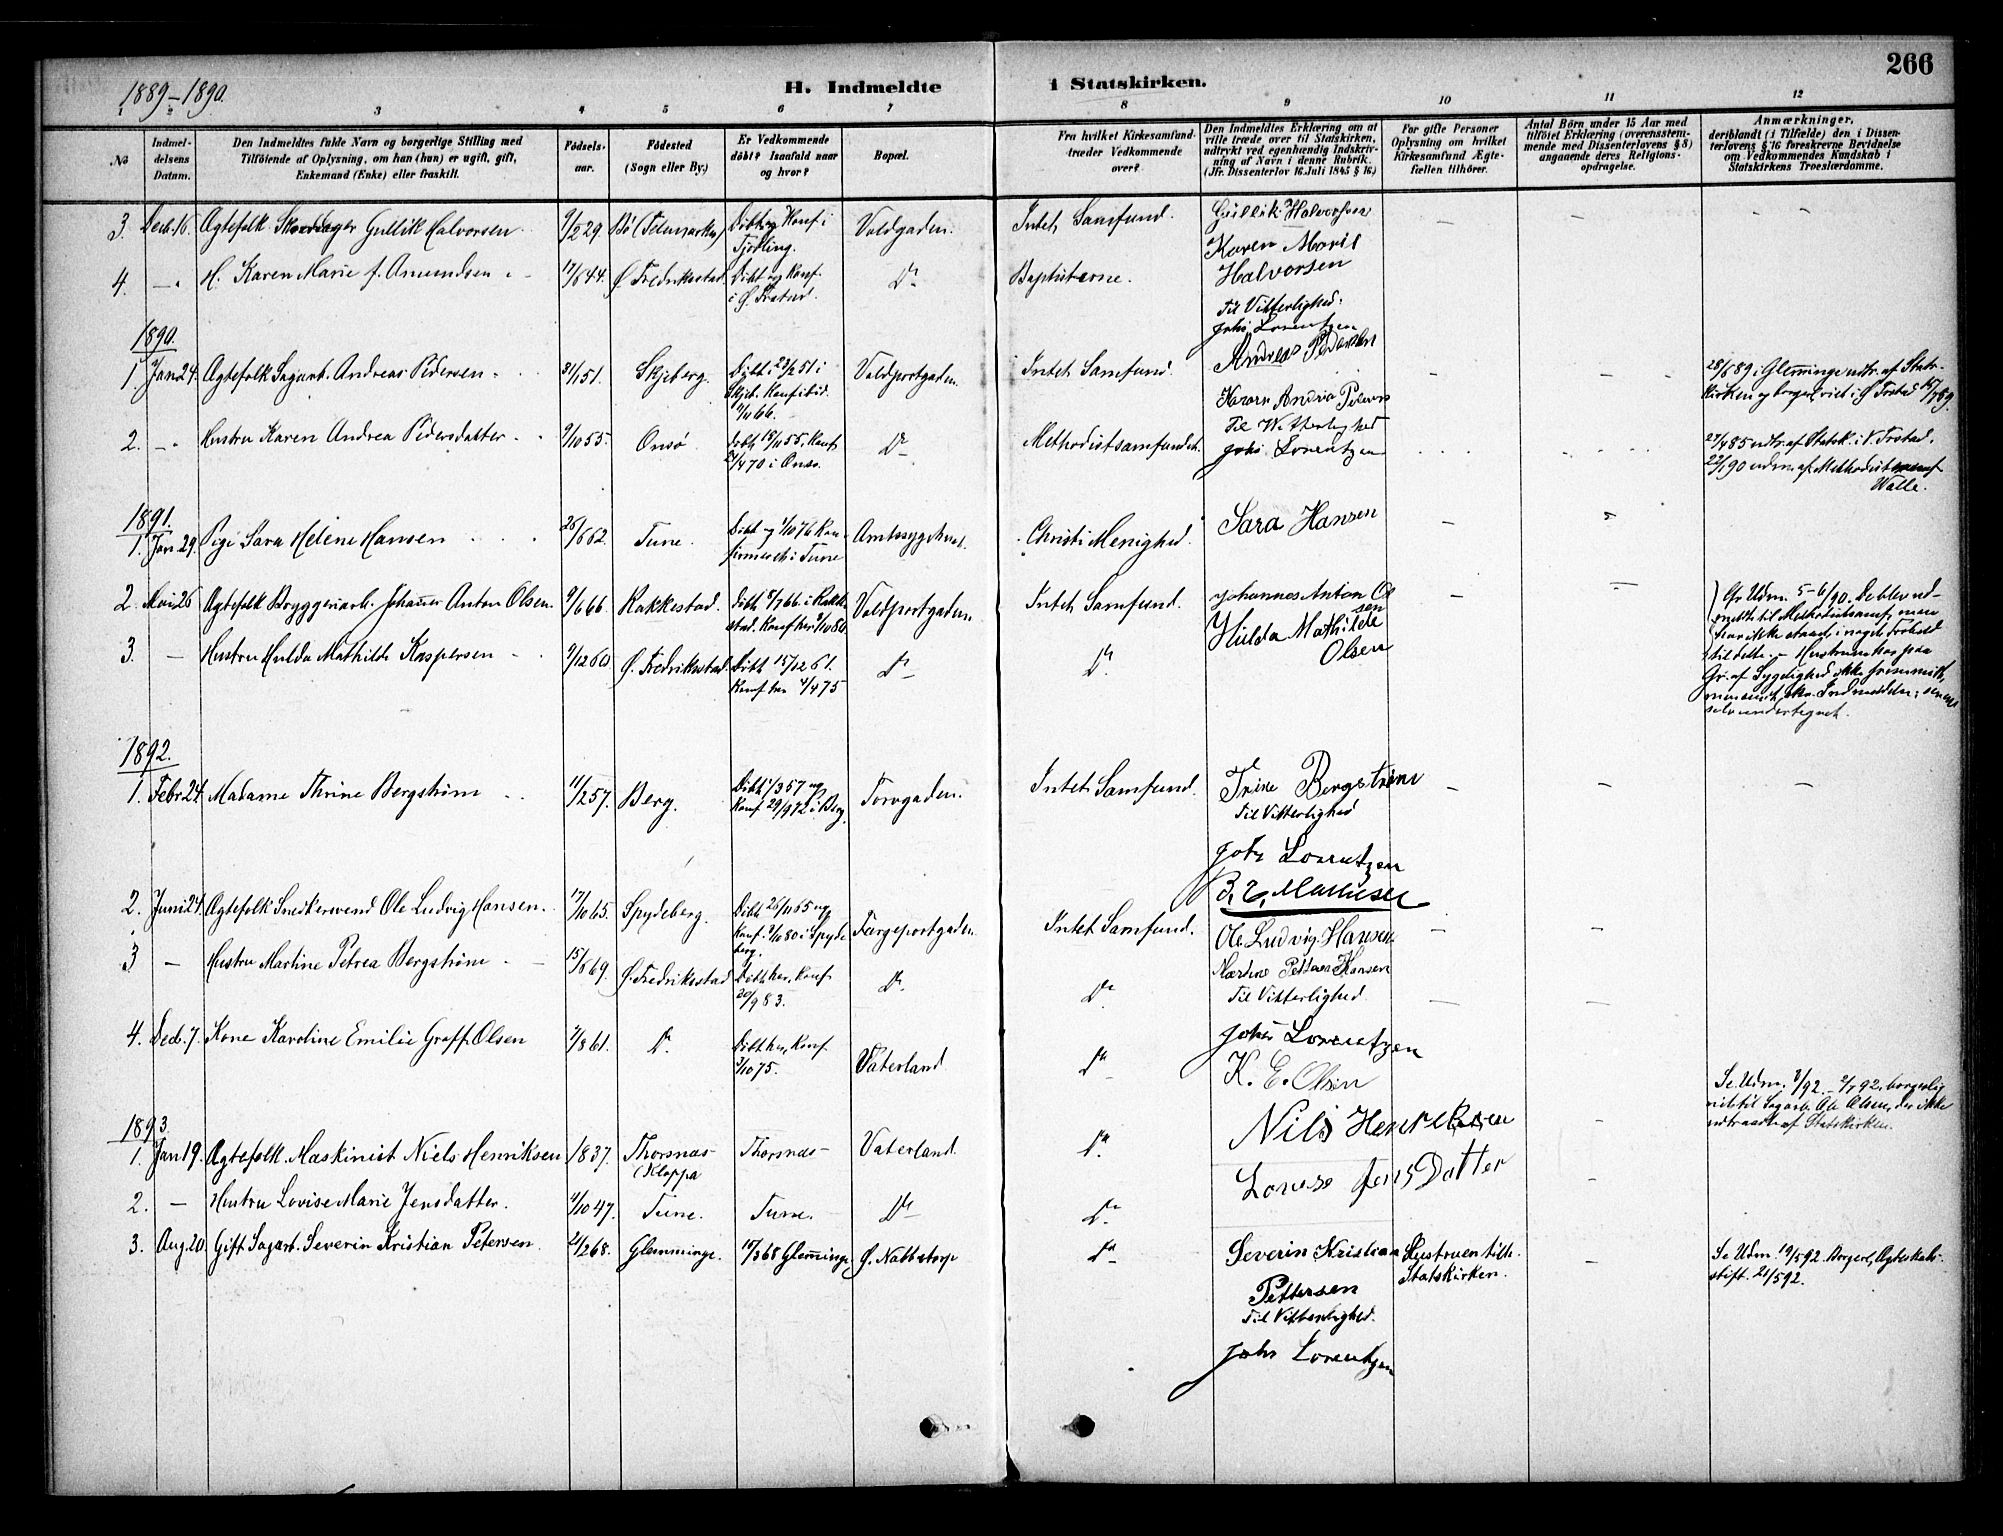 266
1889-1890.
H. Indmeldte i Statskirken.
1 2 3 4 5 6 7 8 9 10 11 12
No
Indmeldelsens Datum.
Den Indmeldtes fulde Navn og borgerlige Stilling med
Tilföiende af Oplysning, om han (hun) er ugift, gift,
Enkemand (Enke) eller fraskilt.
Födselsaar.
Födested
(Sogn eller By.)
Er Vedkommende
döbt? Isaafald naar
og hvor?
Bopæl.
Fra hvilket Kirkesamfund
træder Vedkommende
over?
Den Indmeldtes Erklæring om at
ville træde over til Statskirken,
udtrykt ved egenhændig Indskrivning
af Navn i denne Rubrik.
(Jfr. Dissenterlov 16 Juli 1845 § 16.)
For gifte Personer
Oplysning om hvilket
Kirkesamfund Ægtefællen
tilhörer.
Antal Börn under 15 Aar med
tilföiet Erklæring (overensstemmende
med Dissenterlovens § 8)
angaaende deres Religionsopdragelse.
Anmærkninger,
deriblandt (i Tilfælde) den i Dissenterlovens
§ 16 foreskrevne Bevidnelse
om Vedkommendes Kundskab i
Statskirkens Troeslærdomme.
3. Dech. 16. Ægtefolk Gullik Halvorsen 9/2 29. Bø (Telemarken) Döbt og Konf. i Tjølling. Voldgaden. Intet Samfund. Gullik Halvorsen - - - -
4. - H. Karen Marie f. Amundsen 17/6 44. Ø. Fredrikstad. Döbt og Konf. i Ø. Frstad. Do Baptisterne. Karen Marie Halvorsen
Til Vitterlighed:
Johs Lorentzen
1890.
1. Jan. 24. Ægtefolk Sagarb. Andreas Pedersen 31/1 51. Skjeberg. Döbt 23/2 51 i Skjeb. Konf ibid. 66. Voldportgaden. Intet Samfund. Andreas Pedersen - - 28/6 89 i Glemminge udtr. af Statskirken og borgerl. viet i Ø Frstad
2. - Hustru Karen Andrea Pedersdatter 9/10 55. Onsø. Döbt 18/11 55, Konf. 24/4 70 i Onsø. Do Methodistsamfundet. Karen Andrea
Til Vitterlighed
Johs Lorentzen
27/4 85 udtr. af Statsk. i V. Frstad.
22/1 90 udm. af Methodistsamf
Walle.
1891.
1. Jan. 29. Pige Sara Helene Hansen 26/6 62. Tune. Döbt og 1/10 76 Konfirmeret i Tune Amtssygehuset. Christi Menighed. Sara Hansen
2. Mai 26 Ægtefolk Bryggeriarb. Johannes Anton Olsen. 9/6 66. Rakkestad. Döbt 8/7 66. i Rakkestad. Konf her Voldportgaden. Intet Samfund. Johannes Anton Olsen - - Cfr Udm. 5-6/90. De blev udmeldt til Methodistsamf, men har ikke staaet i noget Forhold til dette. - Hustruen har paa Gr. af Sygelighed ikke fremmødt,
3. - Hustru Hulda Mathilde Kaspersen 9/12 60 Ø. Fredrikstad Döbt 15/12 61. Konf her 4/4 75 Do Do Hulda Mathilde Olsen selv undertegnet.
1892.
1. Febr. 24. Madame Thrine Bergstrøm 11/2 57. Berg. Döbt 1/3 57 og Konf 29/9 72 i Berg. Torvgaden. Intet Samfund. Trine Bergstrøm - - -
Til Vitterlighed
Johs Lorentzen
2. Juni 24. Ægtefolk Snedkersvend Ole Ludvig Hansen. 17/10 65. Spydeberg. Döbt 26/11 65 og Konf. 3/10 80 i Spydeberg. Færgeportgaden Intet Samfund. Ole Ludvig Hansen - -
3 - Hustru Martine Petrea Bergstrøm 15/6 69. Ø. Fredrikstad Döbt her, Konf. 30/9 83. Do Do Martine Petrea Hansen - -
Til Vitterlighed.
Johs Lorentzen
4. Dec. 7. Kone Karoline Emilie Graff Olsen 7/8 61. Do. Döbt her, Konf. 3/10 75. Vaterland Do K. E. Olsen Se Udm. 92. borgerlig viet til Sagarb. Ole Olsen, der ikke udtraadt af Statskirken.
1893.
1. Jan. 19. Ægtefolk Maskinist Niels Henriksen 1837. Thorsnæs (Kloppa Thorsnæs Vaterland. Do. Nils Henriksen -
2. - Hustru Lovise Marie Jensdatter. 11/10 47. Tune. Tune. Do Do. Louise Jens Datter -
3. Aug. 20. Gift Sagarb. Severin Kristian Petersen. 21/2 68. Glemminge. 15/3 68 Glemminge Ø. Nabbetorp Do Severin Kristian Pettersen Hustruen tilh. Statskirken. - Se Udm. 19/5 92. Borgerl. Ægteskabsstift. 21/5 92.
Til Vitterlighed.
Johs Lorentzen